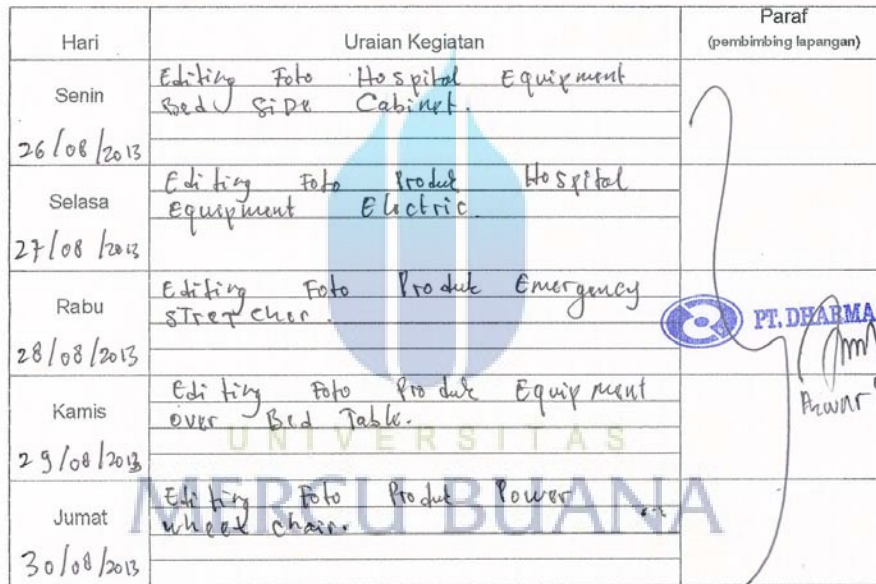 Hari Uraian Kegiatan Paraf
(pembimbing lapangan)
Senin
26/08/2013
Editing Foto Hospital Equipment
Bed Side Cabinet.
Selasa
27/08/2013
Editing Foto Produk Hospital
Equipment Electric.
Rabu
28/08/2013
Editing Foto Produk Emergency
sTretcher.
PT. DHARMA
Kamis
29/08/2013
Editing Foto Produk Equipment
over Bed Table.
Azwar
UNIVERSITAS
MERCU BUANA
Jumat
30/08/2013
Editing Foto Produk Power
wheel chair.